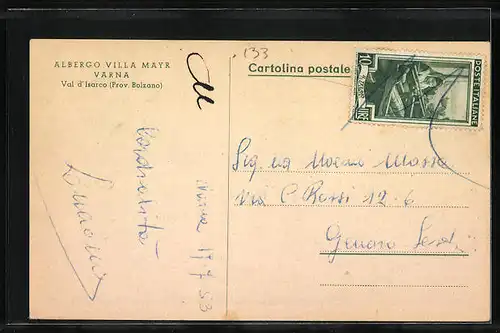 ALBERGO VILLA MAYR
VARNA
Val d'Isarco (Prov. Bolzano)
133
Cartolina postale
POSTE ITALIANE
10
LIRE
Cordialità
Varna 17 7 53
Sig.na Noemi Massa
via C. Rossi 12.6
Genova